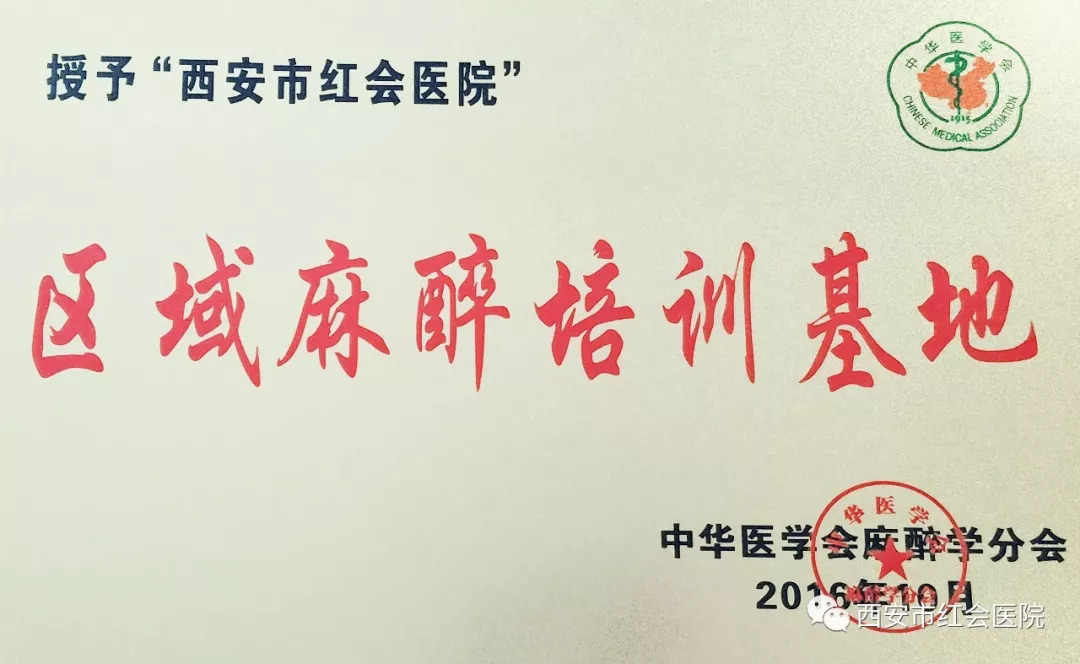 授予“西安市红会医院”
中华医学会
1915
CHINESE MEDICAL ASSOCIATION
区域麻醉培训基地
中华医学会麻醉学分会
2016年10月
中华医学会
麻醉学分会
西安市红会医院